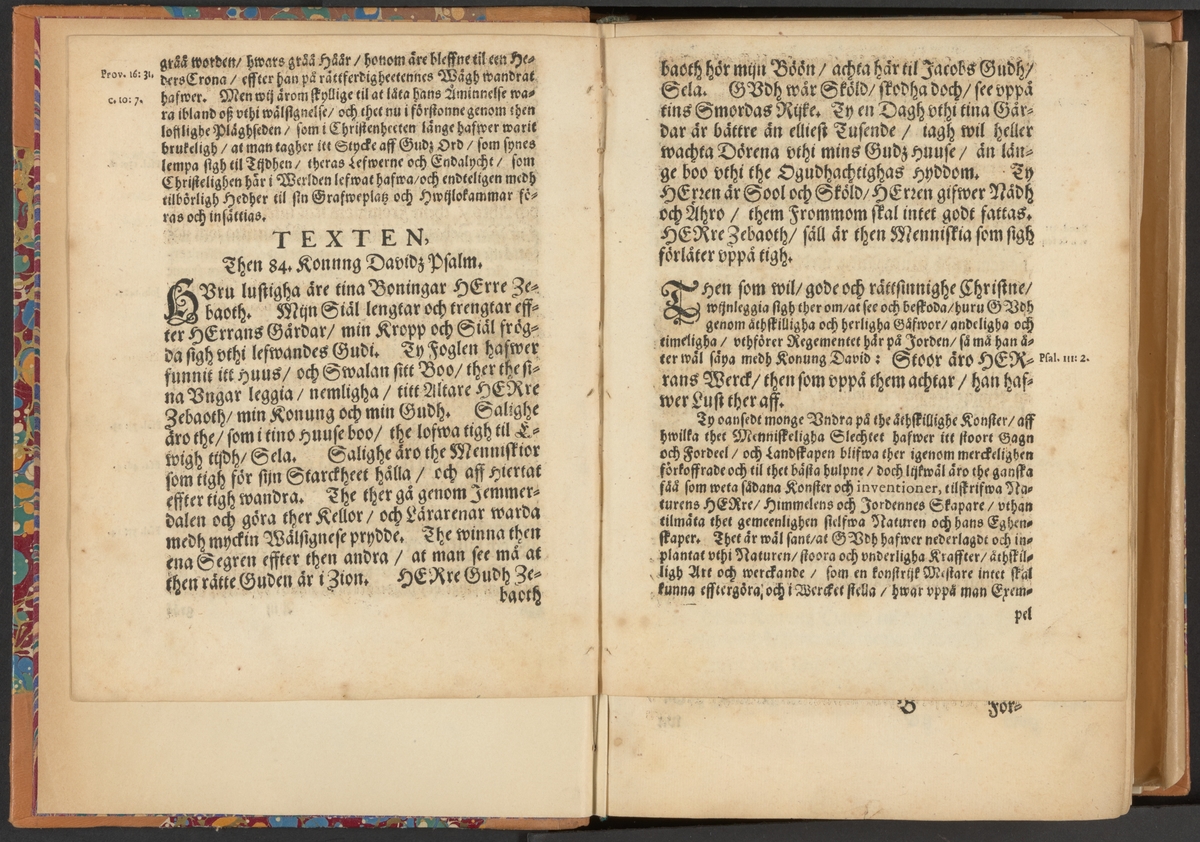 gråå worden/ hwars gråå Håår/ honom äre bleffne til een He-
dersCrona/ effter han på rättferdigheetennes Wägh wandrat
Prov. 16: 31.
hafwer. Men wij ärom skyllige til at låta hans Åminnelse wa-
c. 10: 7.
ra ibland oß vthi wälsignelse/ och thet nu i förstonne genom then
loflilighe Plåghseden/ som i Christenheeten länge hafwer warit
brukeligh/ at man tagher itt Stycke aff Gudz Ord/ som synes
lempa sigh til Tijdhen/ theras Lefwerne och Endalycht/ som
Christelighen här i Werlden lefwat hafwa/ och endteligen medh
tilbörligh Hedher til sin Grafweplatz och Hwijlokammar fö-
ras och insättias.
TEXTEN,
Then 84. Konung Davidz Psalm.
HVru lustigha äre tina Boningar HErre Ze-
baoth. Mijn Siäl lengtar och trengtar eff-
ter HErrans Gårdar/ min Kropp och Siäl frög-
da sigh vthi lefwandes Gudi. Ty Foglen hafwer
funnit itt Huus/ och Swalan sitt Boo/ ther the si-
na Vngar leggia/ nemligha/ titt Altare HERre
Zebaoth/ min Konung och min Gudh. Salighe
äro the/ som i tino Huuse boo/ the lofwa tigh til E-
wigh tijdh/ Sela. Salighe äro the Menniskior
som tigh för sijn Starckheet hålla/ och aff Hiertat
effter tigh wandra. The ther gå genom Jemmer-
dalen och göra ther Kellor/ och Lärarenar warda
medh myckin Wälsignese prydde. The winna then
ena Segren effter then andra/ at man see må at
then rätte Guden är i Zion. HERre Gudh Ze-
baoth
baoth hör mijn Böön/ achta här til Jacobs Gudh/
Sela. GVdh wår Sköld/ skodha doch/ see vppå
tins Smordas Rijke. Ty en Dagh vthi tina Går-
dar är bättre än elliest Tusende/ iagh wil heller
wachta Dörena vthi mins Gudz Huuse/ än län-
ge boo vthi the Ogudhachtighas Hyddom. Ty
HErren är Sool och Sköld/ HErren gifwer Nådh
och Ähro/ them Frommom skal intet godt fattas.
HERre Zebaoth/ säll är then Menniskia som sigh
förläter vppå tigh.
THen som wil/ gode och rättsinnighe Christne/
winleggia sigh ther om/ at see och beskoda/ huru GVdh
genom åthskilligha och herligha Gåfwor/ andeligha och
timeligha/ vthförer Regementet här på Jorden/ så må han å-
ter wäl säya medh Konung David: Stoor äro HER-
Psal. 111: 2.
rans Werck/ then som vppå them achtar/ han haf-
wer Lust ther aff.
Ty oansedt monge Vndra på the åthskillighe Konster/ aff
hwilka thet Menniskeligha Slechtet hafwer itt stoort Gagn
och Fordeel/ och Landskapen blifwa ther igenom merckelighen
förkoffrade och til thet bästa hulpne/ doch lijkwäl äro the ganska
fåå som weta sådana Konster och inventioner, tilskrifwa Na-
turens HERre/ Himmelens och Jordennes Skapare/ vthan
tilmäta thet gemeenlighen sielfwa Naturen och hans Eghen-
skaper. Thet är wäl sant/ at GVdh hafwer nederlagdt och in-
plantat vthi Naturen/ stoora och vnderligha Kraffter/ åthskil-
ligh Art och werckande/ som en konstrijk Mestare intet skal
kunna efftergöra, och i Wercket stella/ hwar vppå man Exem-
pel
For-